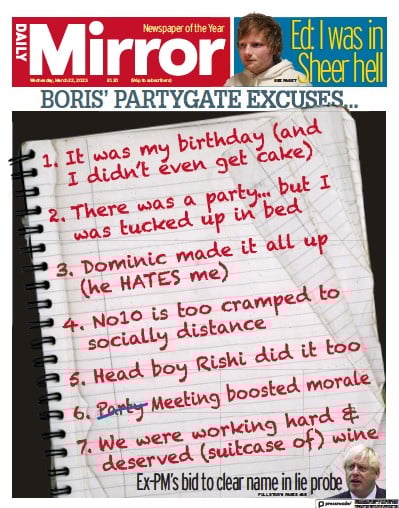 DAILY
Mirror
Newspaper of the Year
Wednesday, March 22, 2023
£1.10
Ed: I was in
Sheer hell
SEE PAGE 7
BORIS' PARTYGATE EXCUSES...
1. It was my birthday (and
I didn't even get cake)
2. There was a party... but I
was tucked up in bed
3. Dominic made it all up
(he HATES me)
4. No10 is too cramped to
socially distance
5. Head boy Rishi did it too
6. Party Meeting boosted morale
7. We were working hard &
deserved (suitcase of) wine
Ex-PM's bid to clear name in lie probe
pressreader